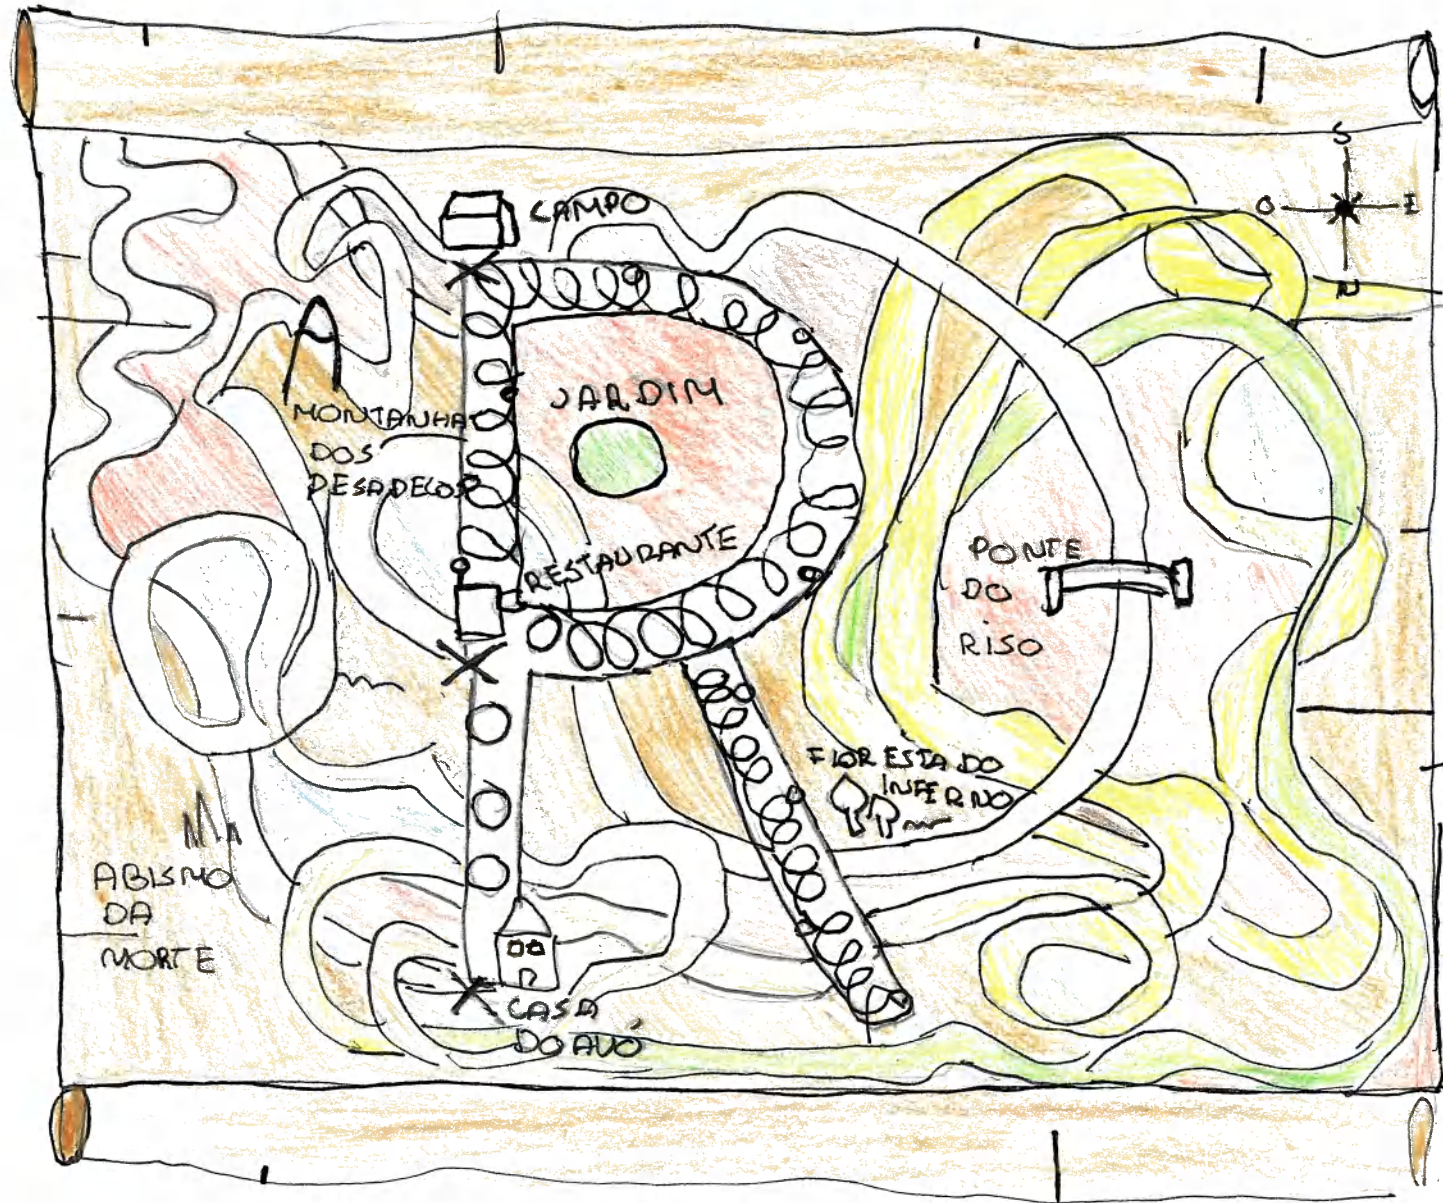 S
O E
N
CAMPO
JARDIM
MONTANHA
DOS
PESADELOS
RESTAURANTE
PONTE
DO
RISO
FLORESTA DO
INFERNO
ABISMO
DA
MORTE
CASA
DO AVÓ